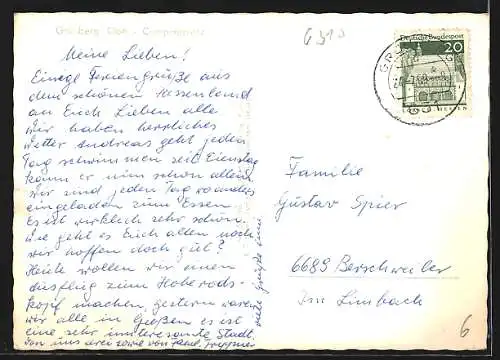 Grünberg
Campingplatz
6310
Deutsche Bundespost
20
HESSEN
Meine Lieben!
Einige Feriengrüße aus
dem schönen Hessenland
an Euch Lieben alle
wir haben herrliches
Wetter Andreas geht jeden
Tag schwimmen seit Dienstag
kann er nun schon allein
wir sind jeden Tag woanders
eingeladen zum Essen
Es ist wirklich sehr schön.
Wie geht es Euch allen noch
wir hoffen doch gut?
Heute wollen wir einen
Ausflug zum Hoherods-
kopf machen, gestern waren
wir alle in Gießen es ist
eine sehr interesante Stadt
von uns drei sowie von
viele Grüße
Familie
Gustav Spier
6689 Berschweiler
Im Limbach
6